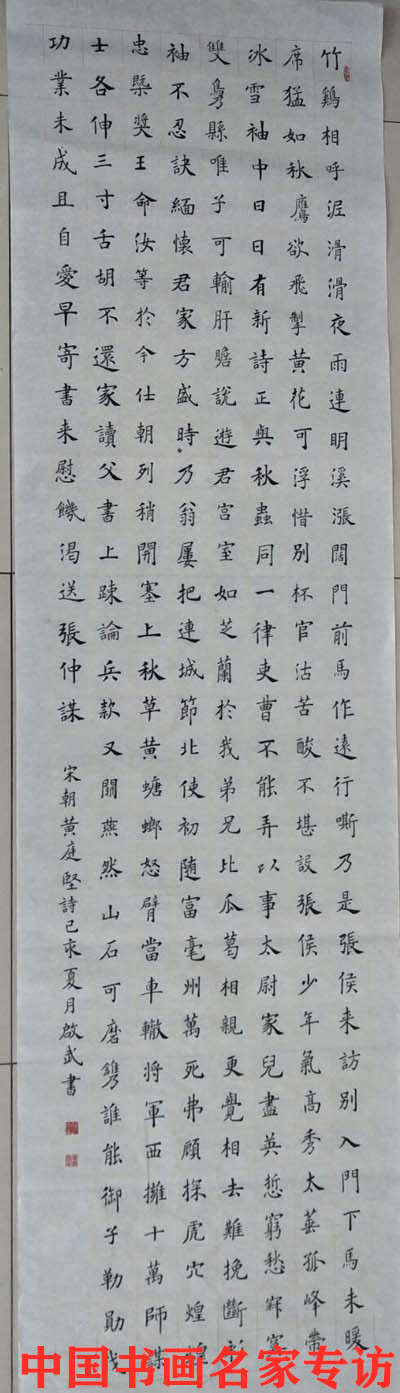 竹鷄相呼泥滑滑夜雨連明溪漲闊門前馬作遠行嘶乃是張侯来訪別入門下馬未暖
席猛如秋鷹欲飛掣黄花可浮惜別杯官沽苦酸不堪設張侯少年氣高秀太華孤峰帶
冰雪袖中日日有新詩正與秋蟲同一律吏曹不能弄以事太尉家兒盡英悊窮愁寐寞
雙鳧縣唯子可輸肝膽說遊君宮室如芝蘭於我弟兄比瓜葛相親更覺相去難挽斷衫
袖不忍訣緬懷君家方盛時乃翁屢把連城節北使初随富亳州萬死弗顧探虎穴煌煌
忠槩奬王命汝等於今仕朝列稍開塞上秋草黄螗螂怒臂當車轍将軍西擁十萬師謀
士各伸三寸舌胡不還家讀父書上踈論兵款又關燕然山石可磨鐫誰能御子勒勛伐
功業未成且自愛早寄書来慰饑渴送張仲謀
宋朝黄庭堅詩己亥夏月啟武書
中国书画名家专访